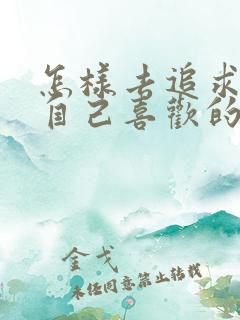 怎様去追求
自己喜歡的
金戈
未经同意禁止转载